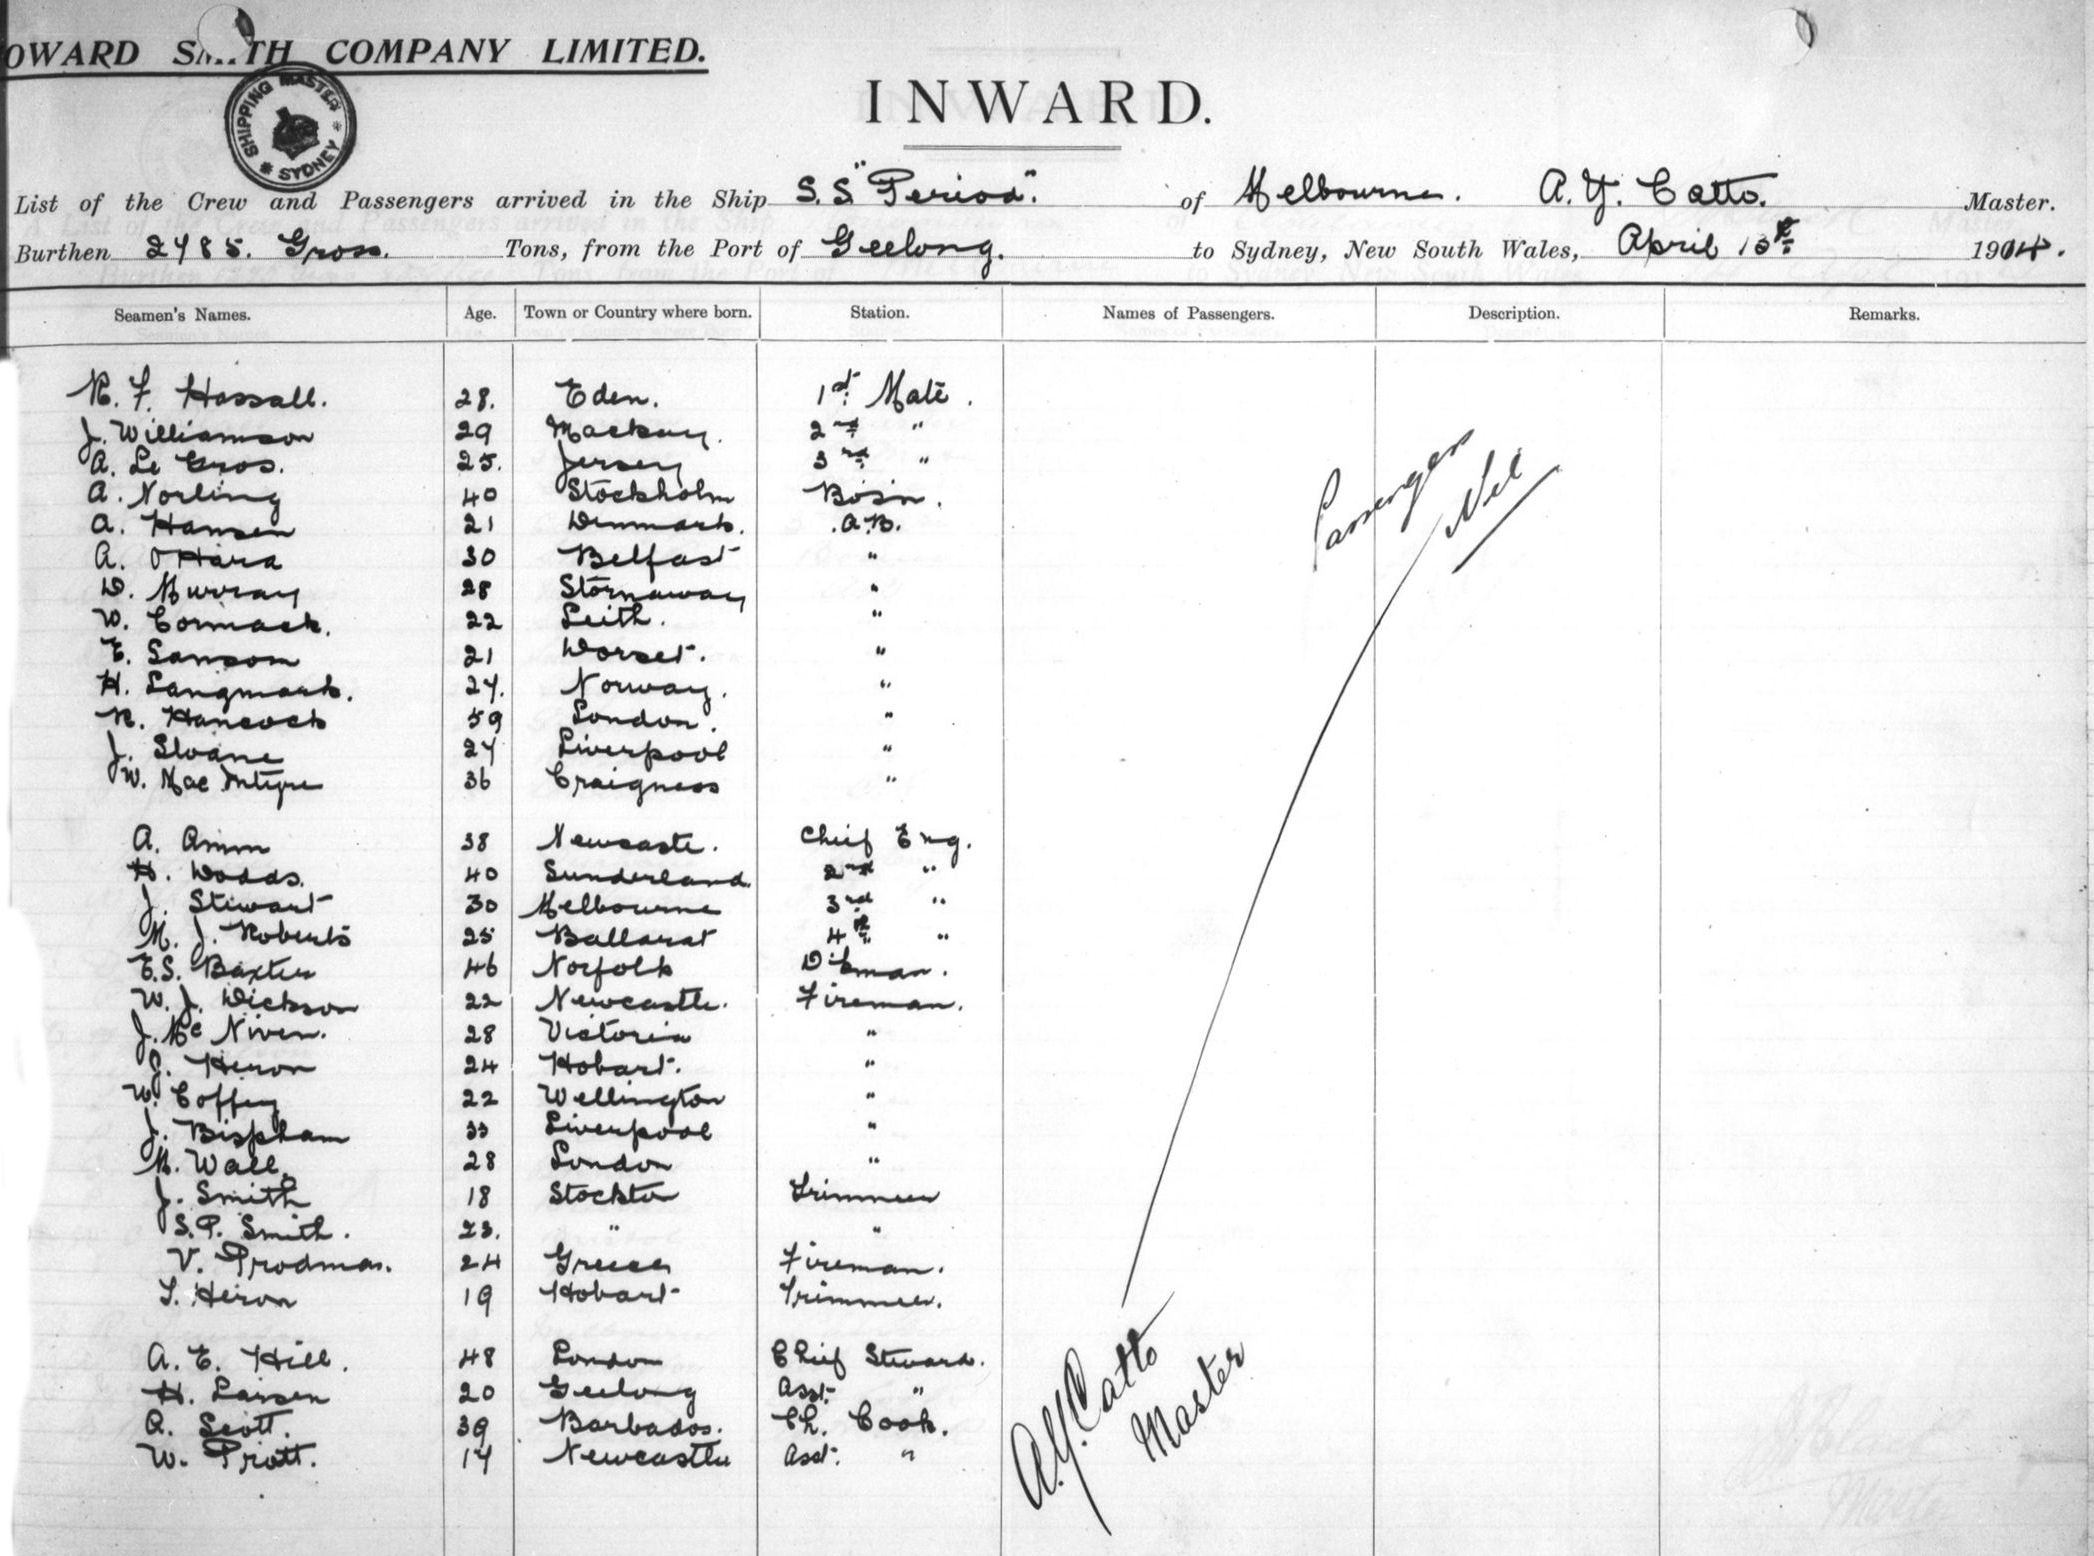 OWARD SMITH COMPANY LIMITED.
SHIPPING MASTER * SYDNEY *
INWARD.
List of the Crew and Passengers arrived in the Ship S.S. "Period". of Melbourne. A. Y. Catto. Master.
Burthen 2785. Gross. Tons, from the Port of Geelong. to Sydney, New South Wales, April 13th 1914.
Seamen's Names. Age. Town or Country where born. Station. Names of Passengers. Description. Remarks.
R. F. Hassall. 28. Eden. 1st Mate.
J. Williamson 29 Mackay. 2nd "
A. Le Gros. 25. Jersey 3rd "
A. Norling 40 Stockholm Bosn.
A. Hansen 21 Denmark. A.B.
A. O'Hara 30 Belfast "
D. Murray 28 Stornaway "
W. Cormack. 22 Leith. "
E. Sansom 21 Dorset. "
H. Langmark. 27. Norway. "
R. Hancock 59 London. "
J. Sloane 27 Liverpool "
W. Mac Intyre 36 Craigness "
Passengers
Nil
A. Amm 38 Newcastle. Chief Eng.
H. Dodds. 40 Sunderland. 2nd "
J. Stewart 30 Melbourne 3rd "
M. J. Roberts 25 Ballarat 4th "
E.S. Baxter 46 Norfolk D'kman.
W. J. Dickson 22 Newcastle. Fireman.
J. Mc Niven. 28 Victoria "
J. Heron 24 Hobart. "
W. Coffey 22 Wellington "
J. Bispham 33 Liverpool "
M. Wall. 28 London "
J. Smith 18 Stockton Trimmer
S.P. Smith. 23. " "
V. Prodmas. 24 Greece Fireman.
L. Heron 19 Hobart Trimmer.
A. E. Hill. 48 London Chief Steward.
H. Larsen 20 Geelong Asst. "
A. Scott. 39 Barbados. Ch. Cook.
W. Pratt. 17 Newcastle Asst. "
A.Y. Catto
Master